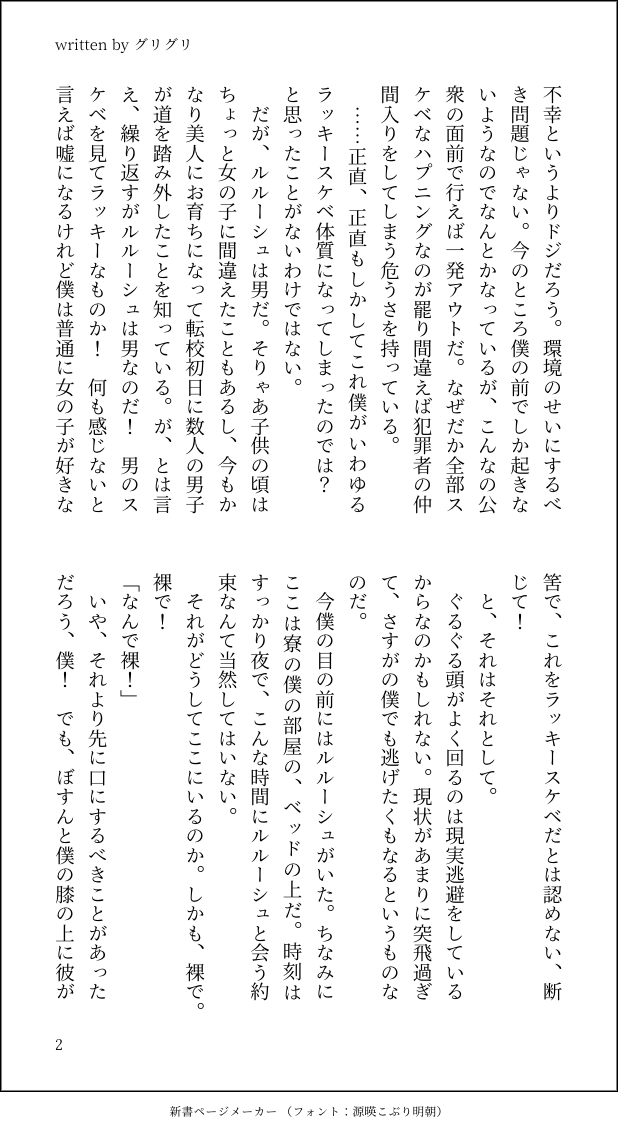 written by グリグリ
不幸というよりドジだろう。環境のせいにするべ
き問題じゃない。今のところ僕の前でしか起きな
いようなのでなんとかなっているが、こんなの公
衆の面前で行えば一発アウトだ。なぜだか全部ス
ケベなハプニングなのが罷り間違えば犯罪者の仲
間入りをしてしまう危うさを持っている。
……正直、正直もしかしてこれ僕がいわゆる
ラッキースケベ体質になってしまったのでは？
と思ったことがないわけではない。
だが、ルルーシュは男だ。そりゃあ子供の頃は
ちょっと女の子に間違えたこともあるし、今もか
なり美人にお育ちになって転校初日に数人の男子
が道を踏み外したことを知っている。が、とは言
え、繰り返すがルルーシュは男なのだ！　男のス
ケベを見てラッキーなものか！　何も感じないと
言えば嘘になるけれど僕は普通に女の子が好きな
筈で、これをラッキースケベだとは認めない、断
じて！
と、それはそれとして。
ぐるぐる頭がよく回るのは現実逃避をしている
からなのかもしれない。現状があまりに突飛過ぎ
て、さすがの僕でも逃げたくもなるというものな
のだ。
今僕の目の前にはルルーシュがいた。ちなみに
ここは寮の僕の部屋の、ベッドの上だ。時刻は
すっかり夜で、こんな時間にルルーシュと会う約
束なんて当然してはいない。
それがどうしてここにいるのか。しかも、裸で。
裸で！
「なんで裸！」
いや、それより先に口にするべきことがあった
だろう、僕！　でも、ぼすんと僕の膝の上に彼が
2
新書ページメーカー（フォント：源暎こぶり明朝）